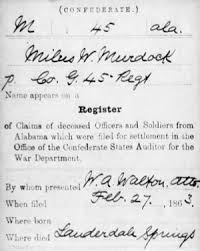 (CONFEDERATE.)
M 45 ala.
Miles W. Murdock
p. Co. G, 45 Regt
Name appears on a
Register
of Claims of deceased Officers and Soldiers from
Alabama which were filed for settlement in the
Office of the Confederate States Auditor for the
War Department.
By whom presented W. A. Walton, Atto.
When filed Feb. 27, 1863.
Where born
Where died Lauderdale Springs